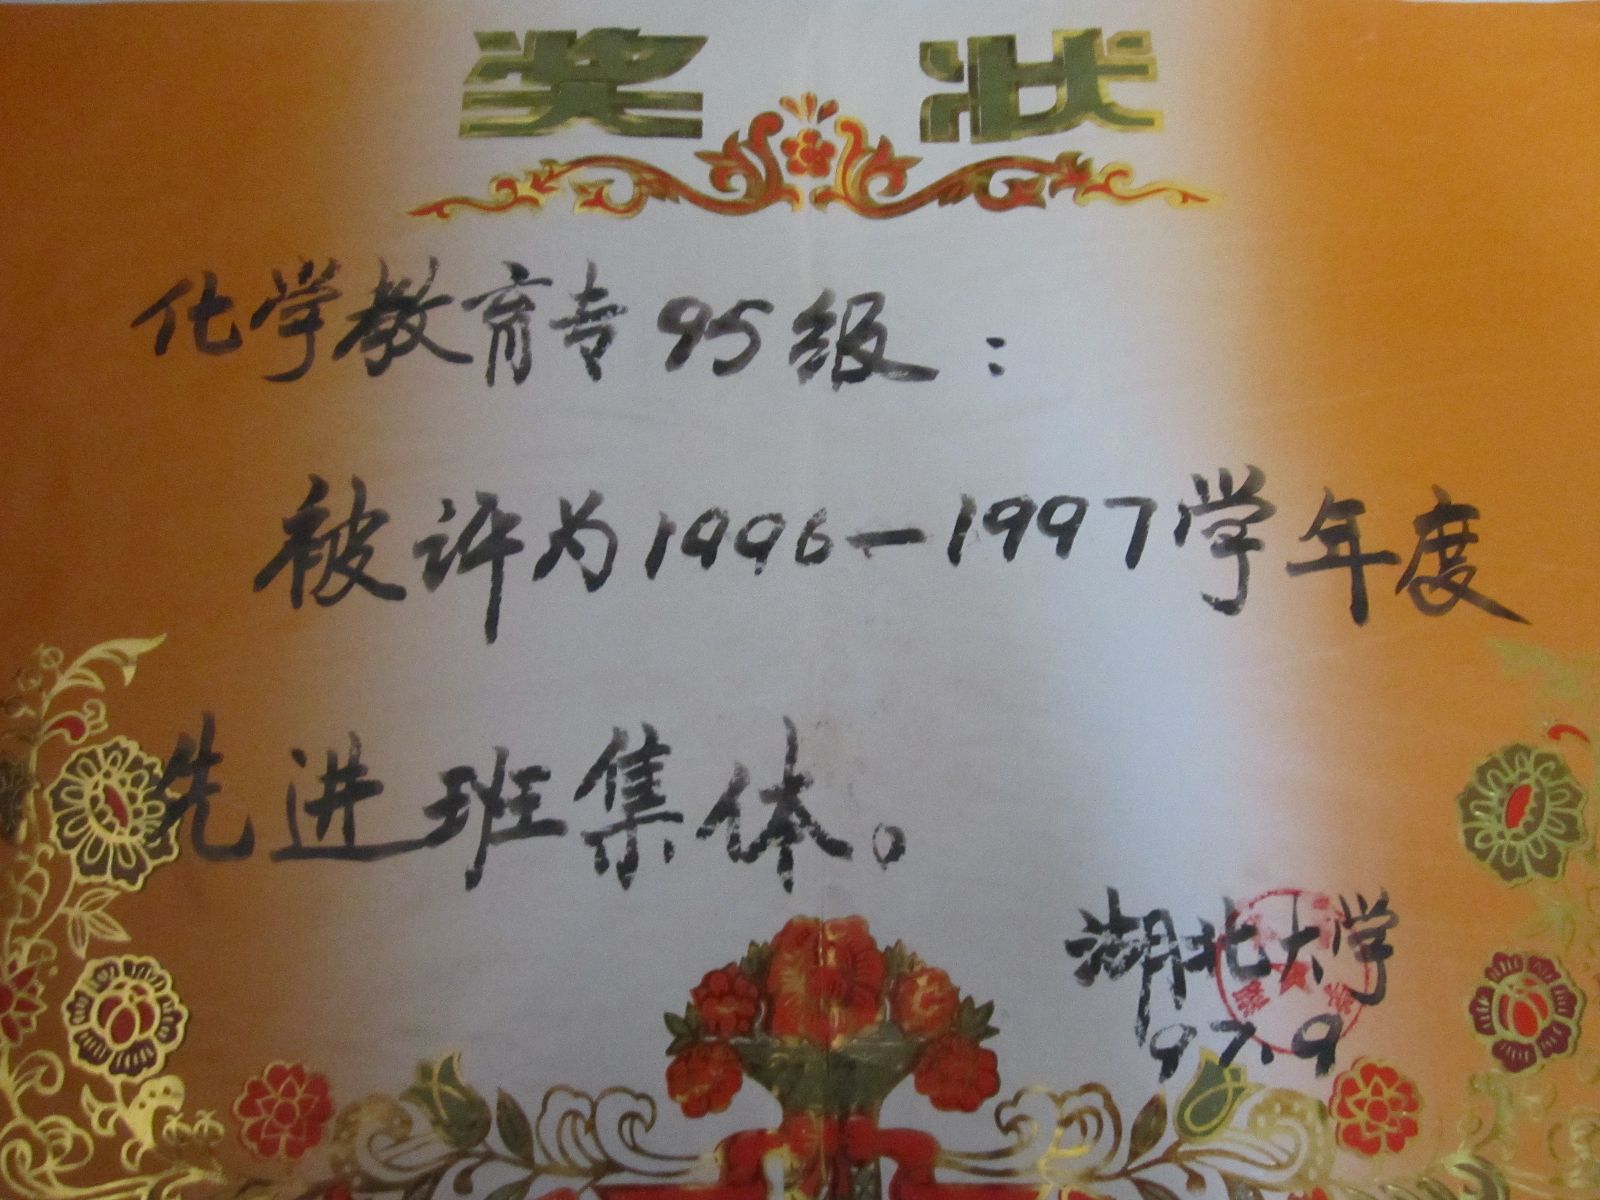 奖状
化学教育专95级：
被评为1996—1997学年度
先进班集体。
湖北大学
97.9